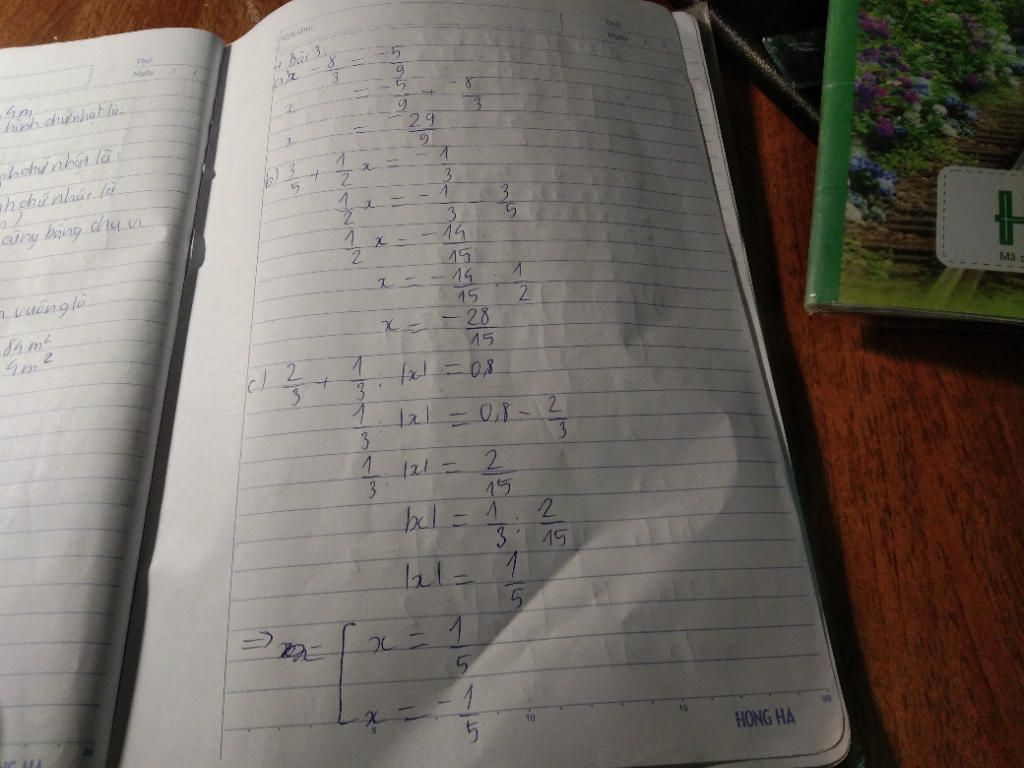 Thứ
Ngày / /
4m
hình chữ nhật là:
nh chữ nhật là:
nh chữ nhật là
cũng bằng chu vi
vuông là
84 m²
4m²
HONG HA
Thứ
Ngày / /
+ Bài 3:
a) x - 8/3 = -5/9
x = -5/9 + -8/3
x = -29/9
b) 3/5 + 1/2 x = -1/3
1/2 x = -1/3 - 3/5
1/2 x = -14/15
x = -14/15 : 1/2
x = -28/15
c) 2/3 + 1/3 . |x| = 0,8
1/3 . |x| = 0,8 - 2/3
1/3 . |x| = 2/15
|x| = 1/3 : 2/15
|x| = 1/5
=> x = [ x = 1/5
x = -1/5
5 10 15 20
HONG HA
H
Mã s